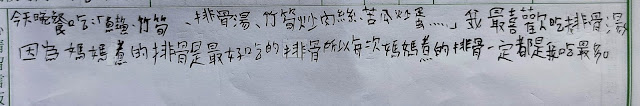 今天晚餐吃滷雞、竹筍、排骨湯、竹筍炒肉絲、苦瓜炒蛋……」我最喜歡吃排骨湯
因為媽媽煮的排骨是最好吃的排骨所以每次媽媽煮的排骨一定都是我吃最多